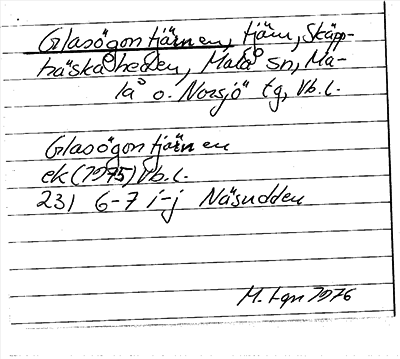 Glasögontjärnen, tjärn, Skäpp-
träskåheden, Malå sn, Ma-
lå o. Norsjö tg, Vb.l.
Glasögontjärnen
ek (1975) Vb.l.
231 6-7 i-j Näsudden
M. Lqn 1976